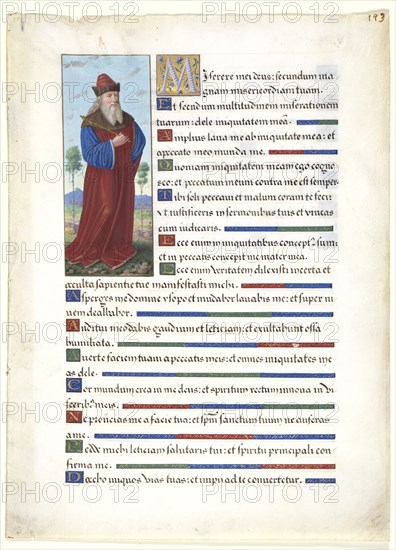 Miserere mei deus: secundum ma
gnam misericordiam tuam.
Et secundum multitudinem miserationem
tuarum: dele iniquitatem meã.
Amplius lava me ab iniquitate mea: et
a peccato meo munda me.
Quoniam iniquitatem meam ego cogno
sco: et peccatum meum contra me est semper.
Tibi soli peccavi et malum coram te feci:
vt iustificeris in sermonibus tuis et vincas
cum iudicaris.
Ecce enim in iniquitatibus concept9 sum:
et in peccatis concepit me mater mea.
Ecce enim veritatem dilexisti incerta et
occulta sapientie tue manifestasti michi.
Asperges me domine ysopo et mũdabor lavabis me: et super ni
vem dealbabor.
Auditui meo dabis gaudium et leticiam: et exultabunt ossa
humiliata.
Averte faciem tuam a peccatis meis: et omnes iniquitates me
as dele.
Cor mundum crea in me deus: et spiritum rectum innova in vi
sceribus meis.
Ne proiicias me a facie tua: et spm̃ sanctum tuum ne auferas
a me.
Redde michi leticiam salutaris tui: et spiritu principali con
firma me.
Docebo iniquos vias tuas: et impii ad te convertetur.
PHOTO12